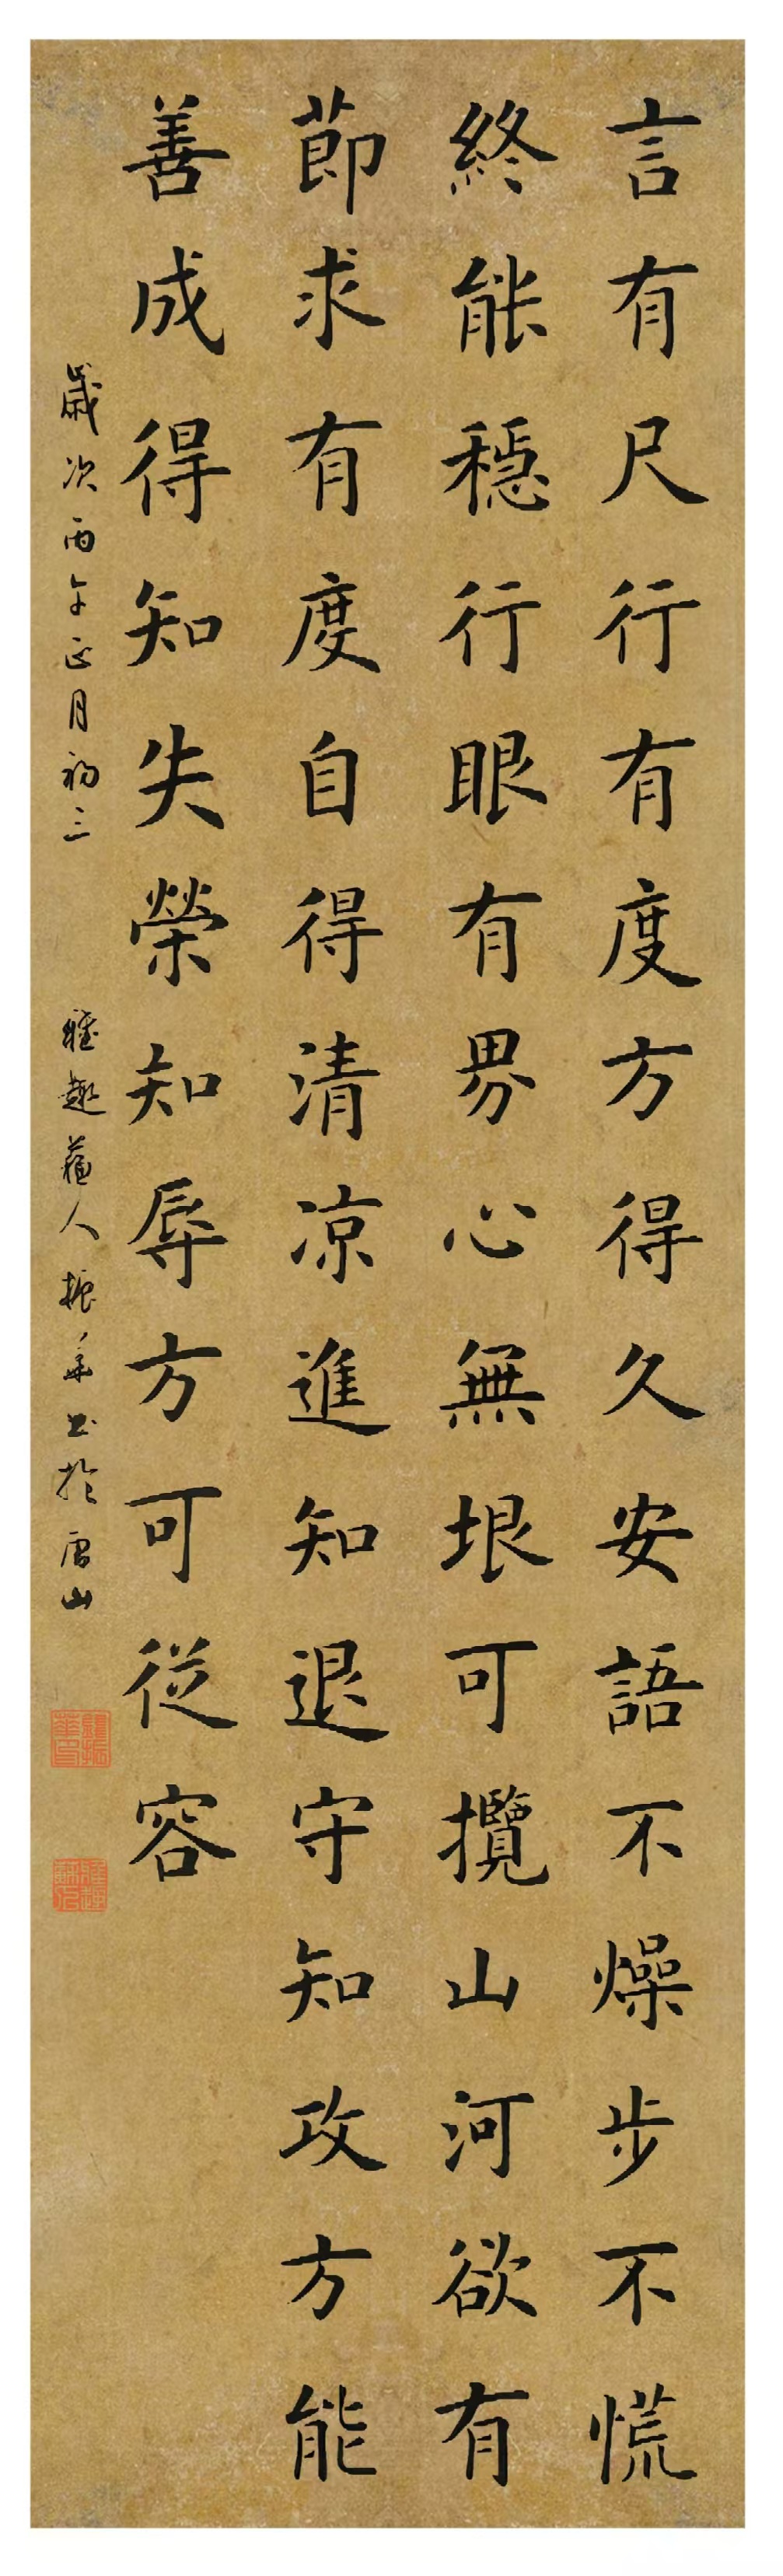 言有尺行有度方得久安語不燥步不慌
終能穩行眼有界心無垠可攬山河欲有
節求有度自得清凉進知退守知攻方能
善成得知失榮知辱方可從容
歲次丙午正月初三
雅趣蘓人振華書於唐山